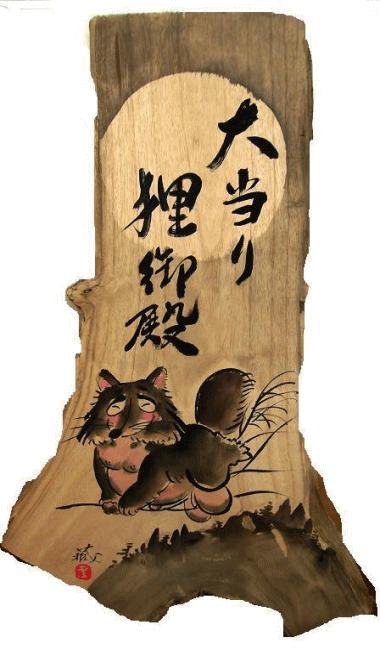 大当り
狸御殿